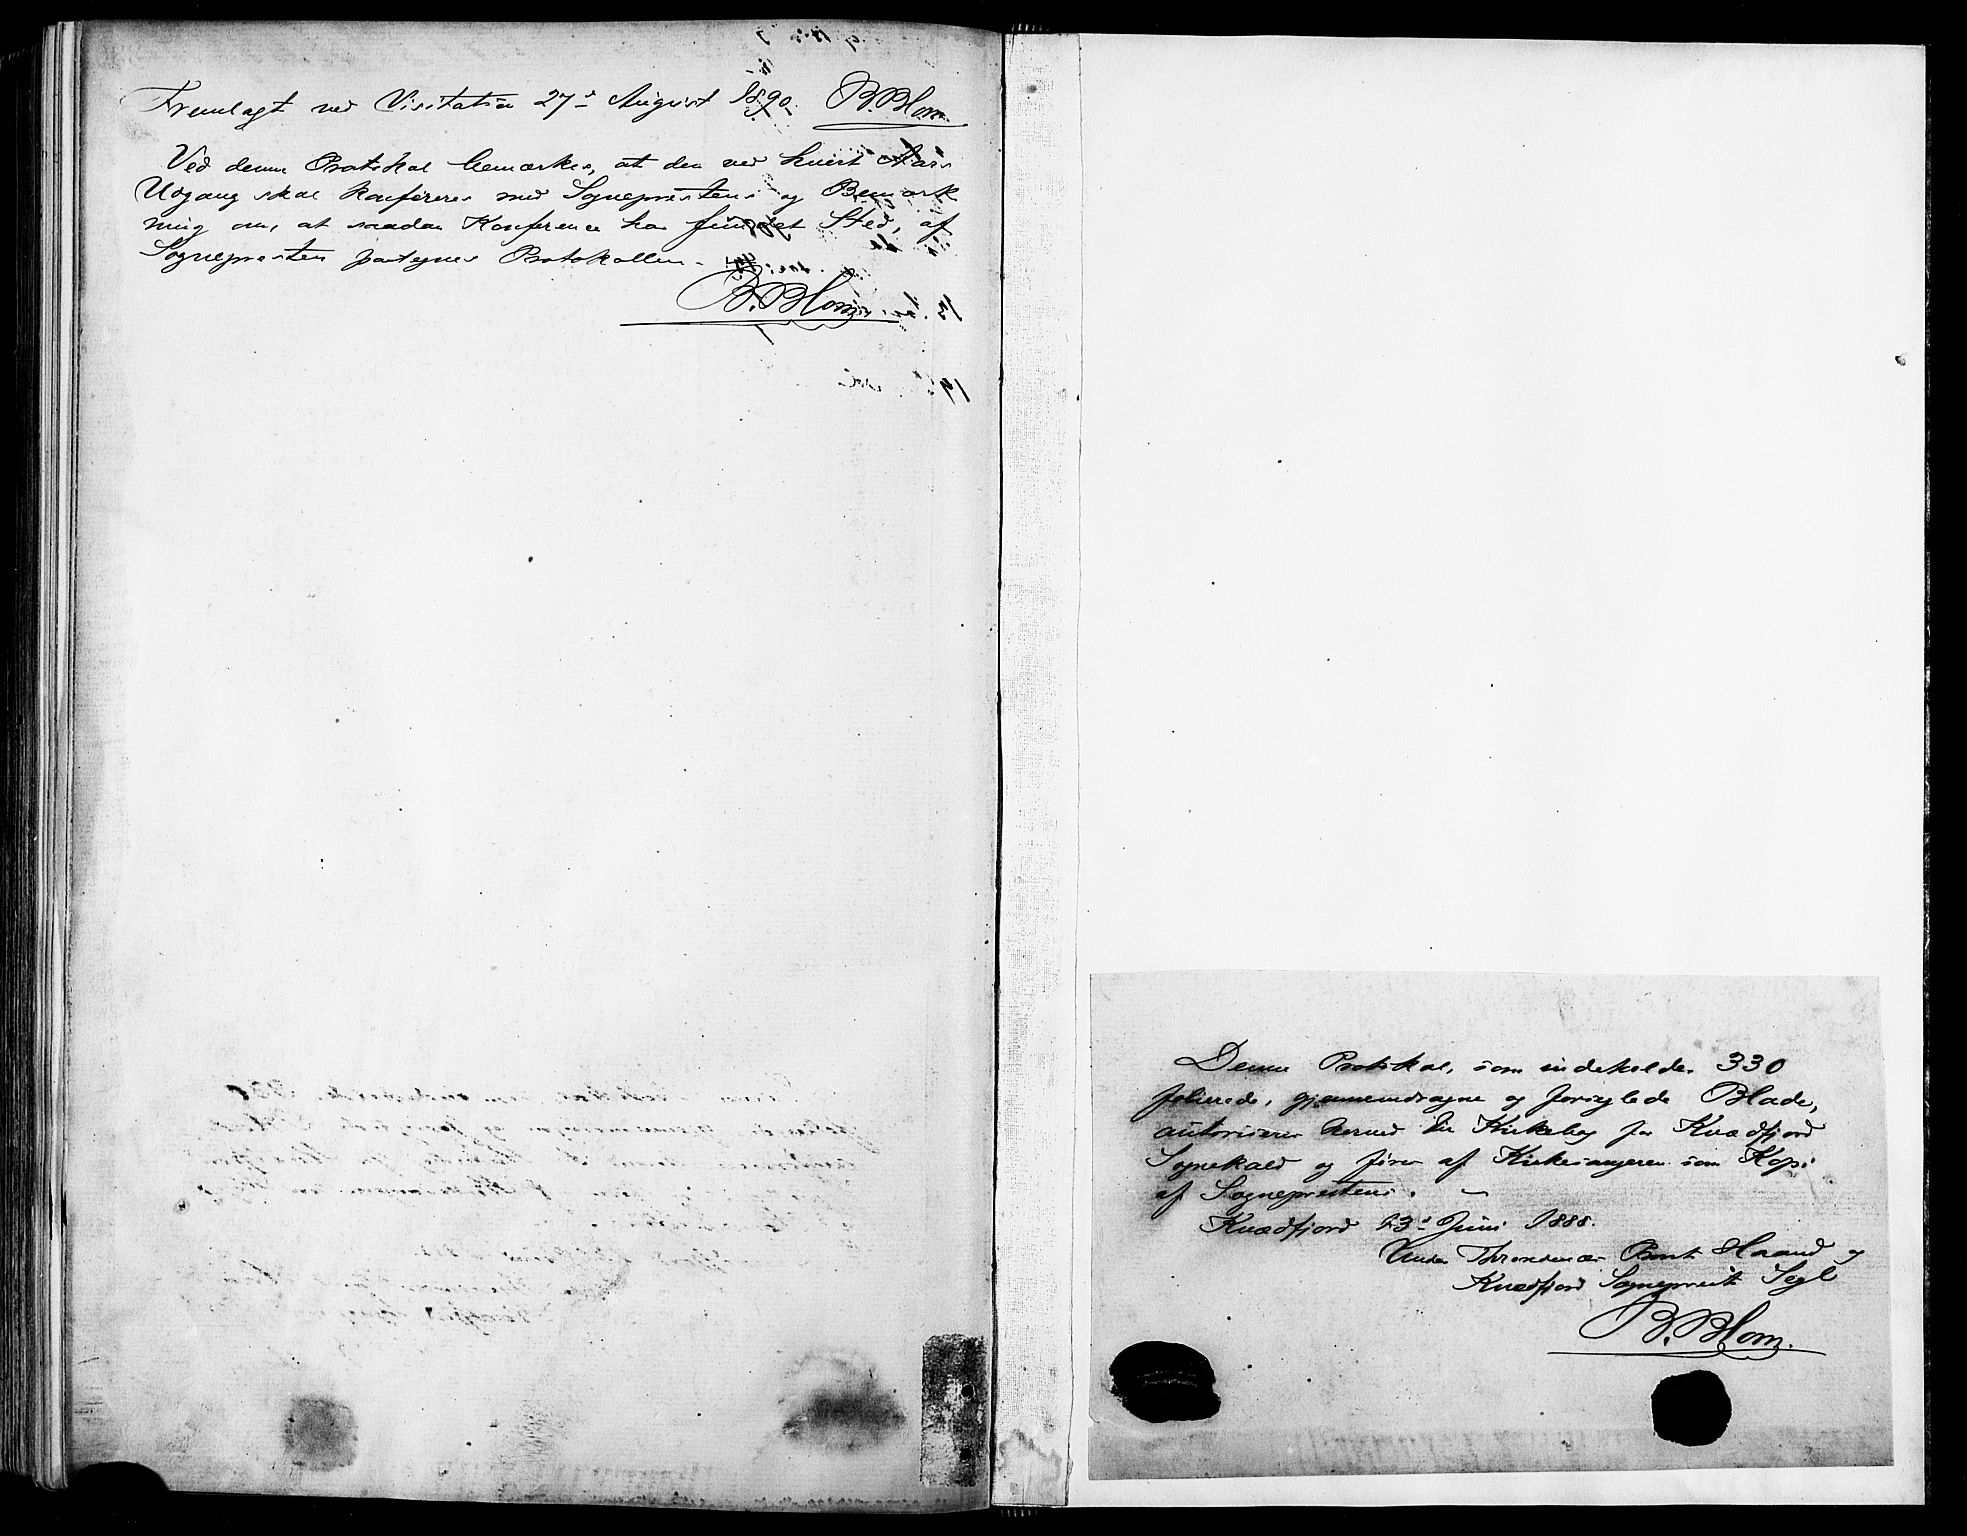 Fremlagt ved Visitation 27de August 1890. B. Blom
Ved denne Protokol bemærkes, at den ved hvert Aars
Udgang skal konfereres med Sogneprestens og Bemærk
ning om, at saadan Konference har fundet Sted, af
Sognepresten paategnes Protokollen. –
B. Blom
Denne Protokol, som indeholder 330
folierede, gjennemdragne og forseglede Blade,
autoriseres herved til Kirkebog for Kvædfjord
Sognekald og føres af Kirkesangeren som Kopi
af Sogneprestens. –
Kvædfjord 23de Juni 1888.
Under Throndenæs Provsti Haand og
Kvædfjord Sogneprest Segl
B. Blom.